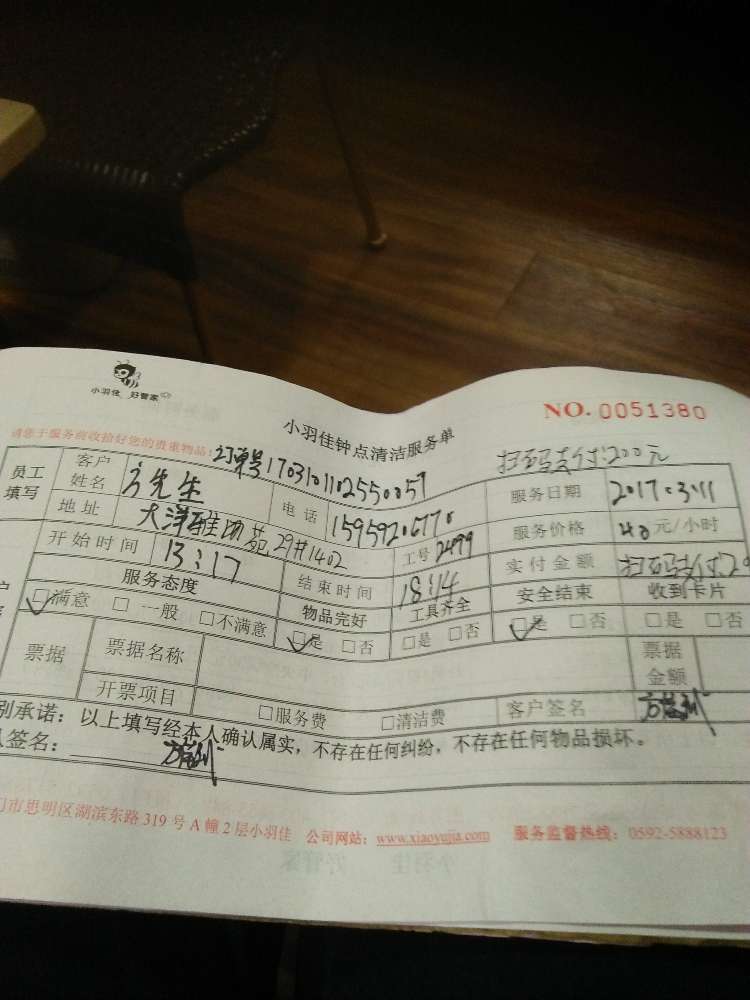 小羽佳 好管家
NO. 0051380
小羽佳钟点清洁服务单
请您于服务前收拾好您的贵重物品!
订单号170310110255005
扫码支付200元
员工填写 客户姓名 方先生 电话 服务日期 2017.3.11
地址 大洋 苑29#1402 工号 2499 服务价格 40元/小时
开始时间 13:17 结束时间 18:14 实付金额 扫码支付
服务态度 物品完好 工具齐全 安全结束 收到卡片
□满意 □一般 □不满意 □是 □否 □是 □否 □是 □否 □是 □否
票据 票据名称 票据金额
开票项目 □服务费 □清洁费 客户签名
别承诺：以上填写经本人确认属实，不存在任何纠纷，不存在任何物品损坏。
签名：
门市思明区湖滨东路 319 号 A 幢 2 层小羽佳 公司网站：www.xiaoyujia.com 服务监督热线：0592-5888123